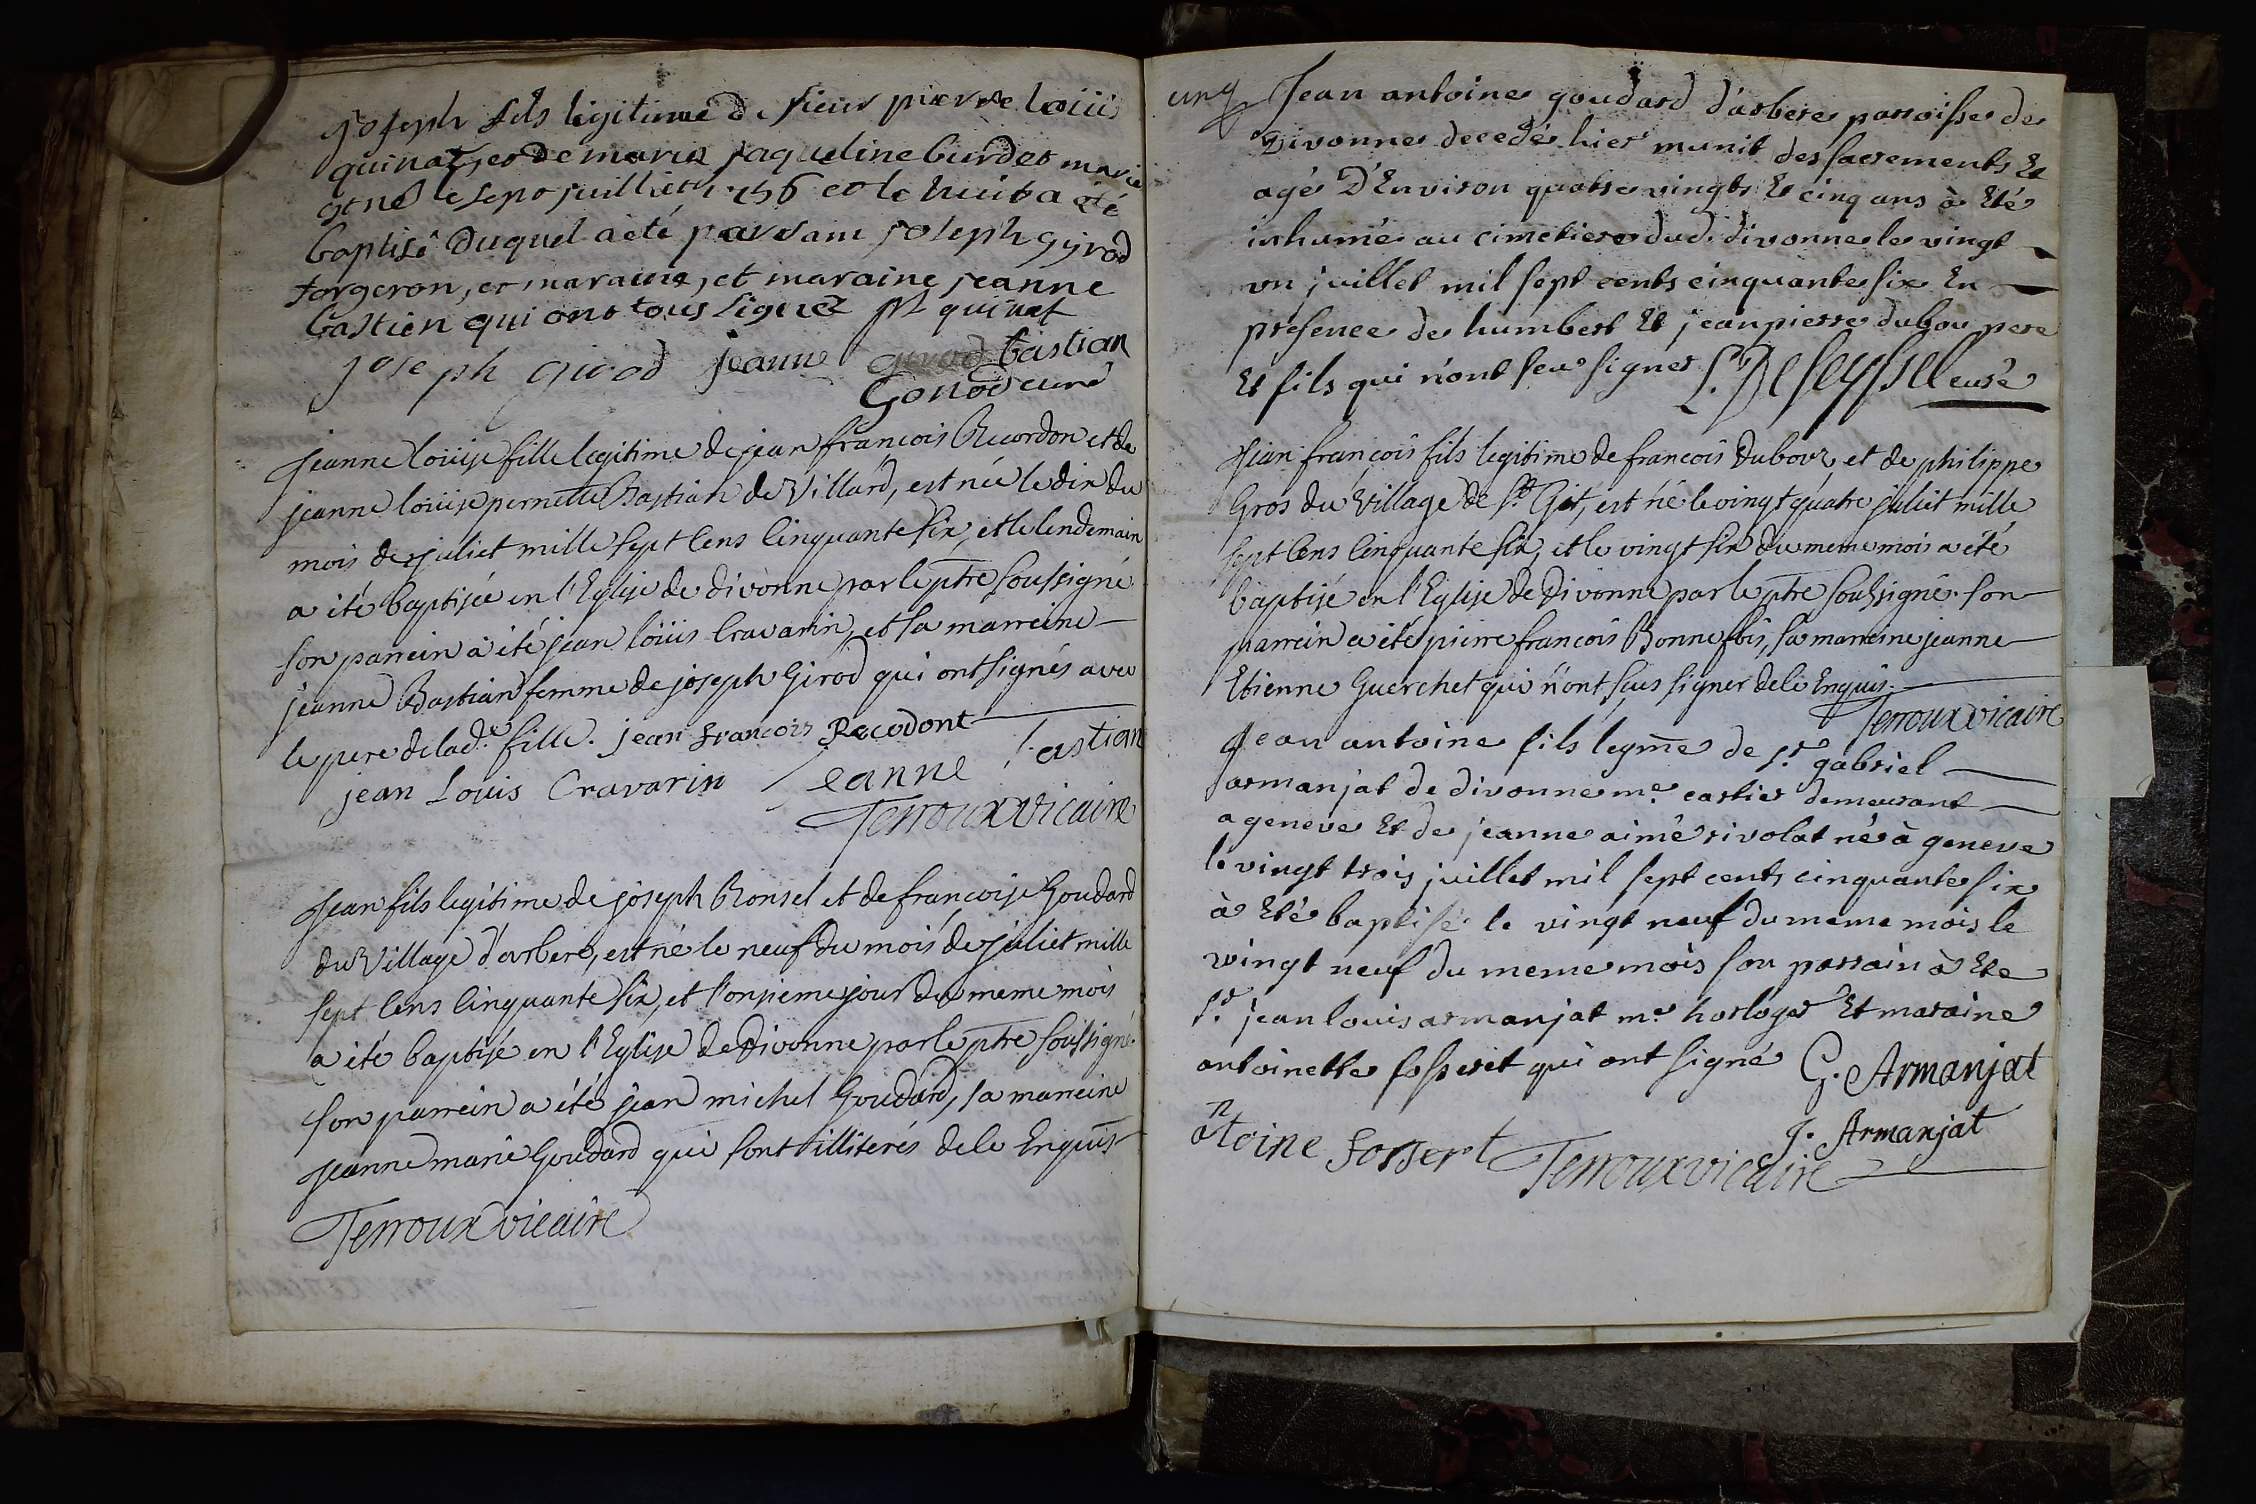 joseph fils legitime de sieur pierre loüis
quinat, et de marie jaqueline burdet mariés
et né le sept juilliet 1756 et le huit a été
baptisé duquel a été parrain joseph gyrod
forgeron, et maraine, et maraine jeanne
bastien qui ont tous signez pl quinat
joseph girod jeanne girod bastian
Gonod curé
jeanne loüise fille legitime de jean francois Recordon et de
jeanne loüise pernette Bastian de Villard, est née le dix du
mois de juliet mille sept cens cinquante six, et le lendemain
a été baptisée en l'Eglise de divonne par le ptre soussigné
son parrein a été jean loüis Cravarin, et sa marreine
jeanne Bastian femme de joseph Girod qui ont signés avec
le pere de lad.e fille. jean francois Recodont
jean Louis Cravarin jeanne bastian
Terroux vicaire
jean fils legitime de joseph Ronset et de francoise Goudard
du Village d'arbere, est né le neuf du mois de juliet mille
sept cens cinquante six, et l'onsieme jour du meme mois
a été baptisé en l'Eglise de divonne par le ptre soussigné.
son parrein a été jean michel Goudard, sa marreine
jeanne marie Goudard qui sont illiterés de ce Enquis
Terroux vicaire
cinq Jean antoine goudard d'arbere parroisse de
Divonne decedé hier munit des sacrements Et
agé D'Environ quatre vingts Et cinq ans à Eté
inhumé au cimetiere dud. divonne le vingt
un juillet mil sept cents cinquante six En
presence de humbert Et jean pierre dubou pere
Et fils qui n'ont seu signer L. De Seyssel curé
jean francois fils legitime de francois Dubout et de philippe
Gros du Village de St. Git, est né le vingt quatre juliet mille
sept cens cinquante six, et le vingt six du meme mois a été
baptisé en l'Eglise de Divonne par le ptre soussigné. son
parrein a été pierre francois Bonnefois, sa marreine jeanne
Etienne Guerchet qui n'ont sçus signer de ce Enquis.
Terroux vicaire
Jean antoine fils legme de sr. gabriel
armanjat de divonne me. cartier demeurant
a geneve Et de jeanne aimé rivolat né à geneve
le vingt trois juillet mil sept cents cinquante six
à Eté baptisé le vingt neuf du meme mois le
vingt neuf du meme mois son parrain à Ete
sr. jean louis armanjat me horloger Et maraine
antoinette fosseret qui ont signé G. Armanjat
J. Armanjat
antoine fosseret Terroux vicaire